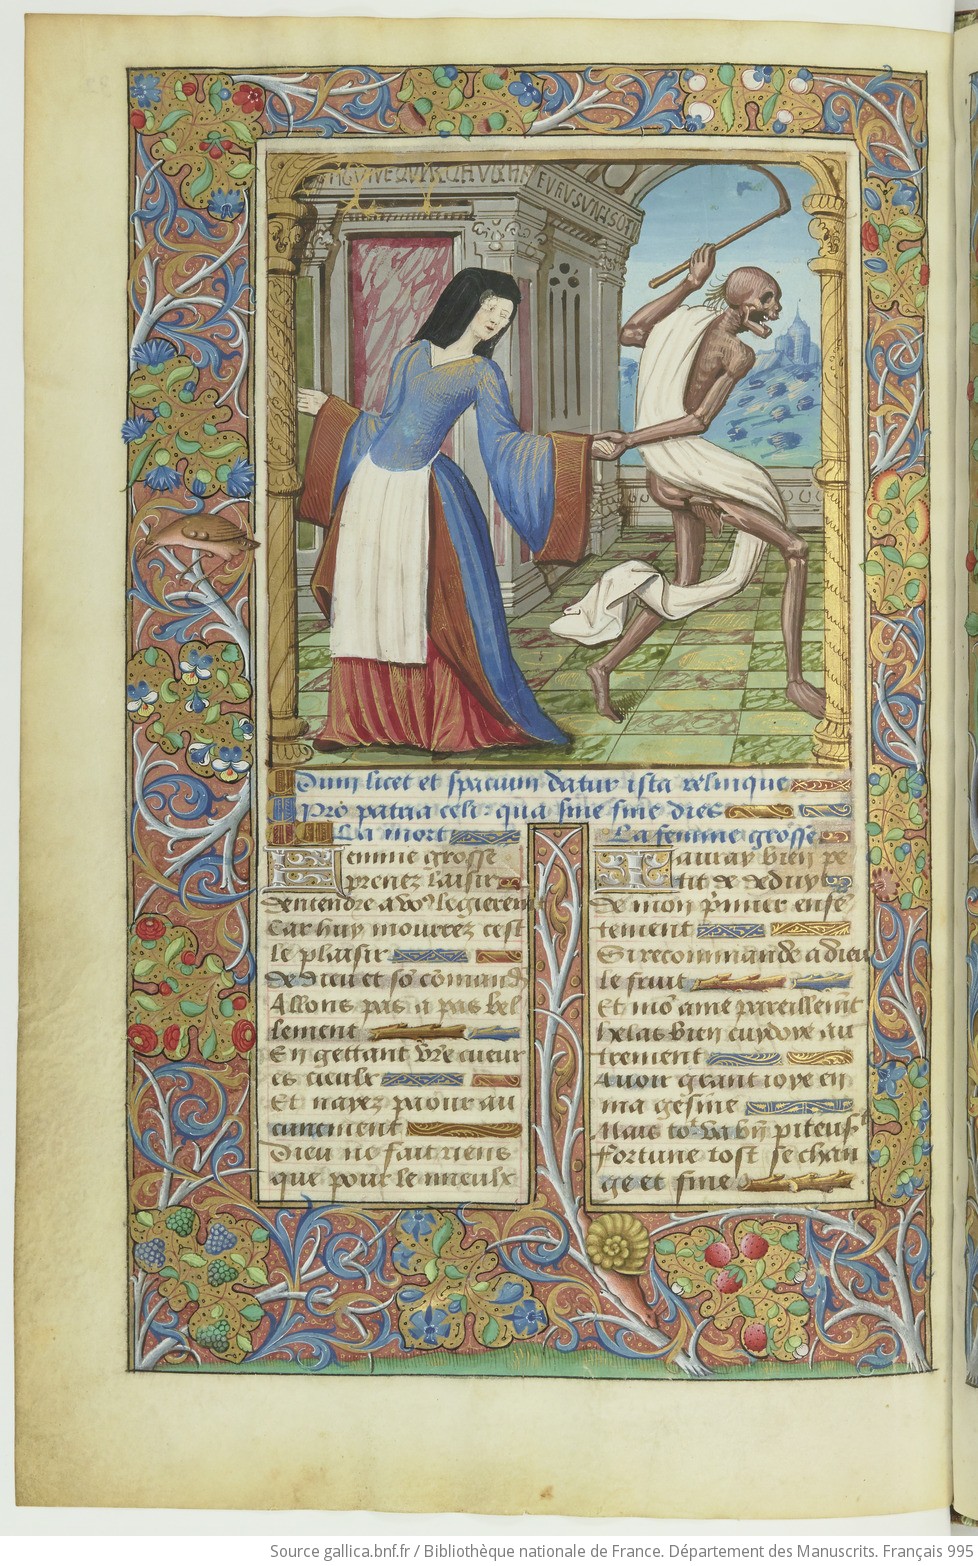 Dum licet et spacium datur ista relinque
Pro patria celi qua sine fine dies
La mort
Femme grosse
prenez laisir
dentendre a vo9 legierement
Car huy mourrez cest
le plaisir
de dieu et so cõmand
Allons pas a pas bel
lement
En gettant vre cueur
es cieulx
Et nayez paour au
cunement
Dieu ne fait riens
que pour le mieulx
La femme grosse
Jauray bien pe
tit de deduyt
de mon pmier enfã
tement
Si recommande a dieu
le fruit
Et mõ ame pareillemt
helas bien cuydoye au
trement
Avoir grant ioye en
ma gesine
Mais tot va bñ piteuset
Fortune tost se chan
ge et fine
Source gallica.bnf.fr / Bibliothèque nationale de France. Département des Manuscrits. Français 995